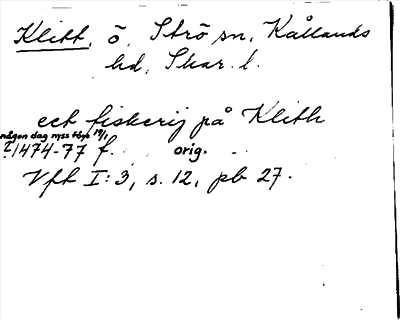 Klitt, ö, Strö sn, Kållands
hd, Skar. l.
eet fiskerij på Klith
någon dag nyss före 19/1
1474-77 f. orig.
Vft I:3, s. 12, pb 27.